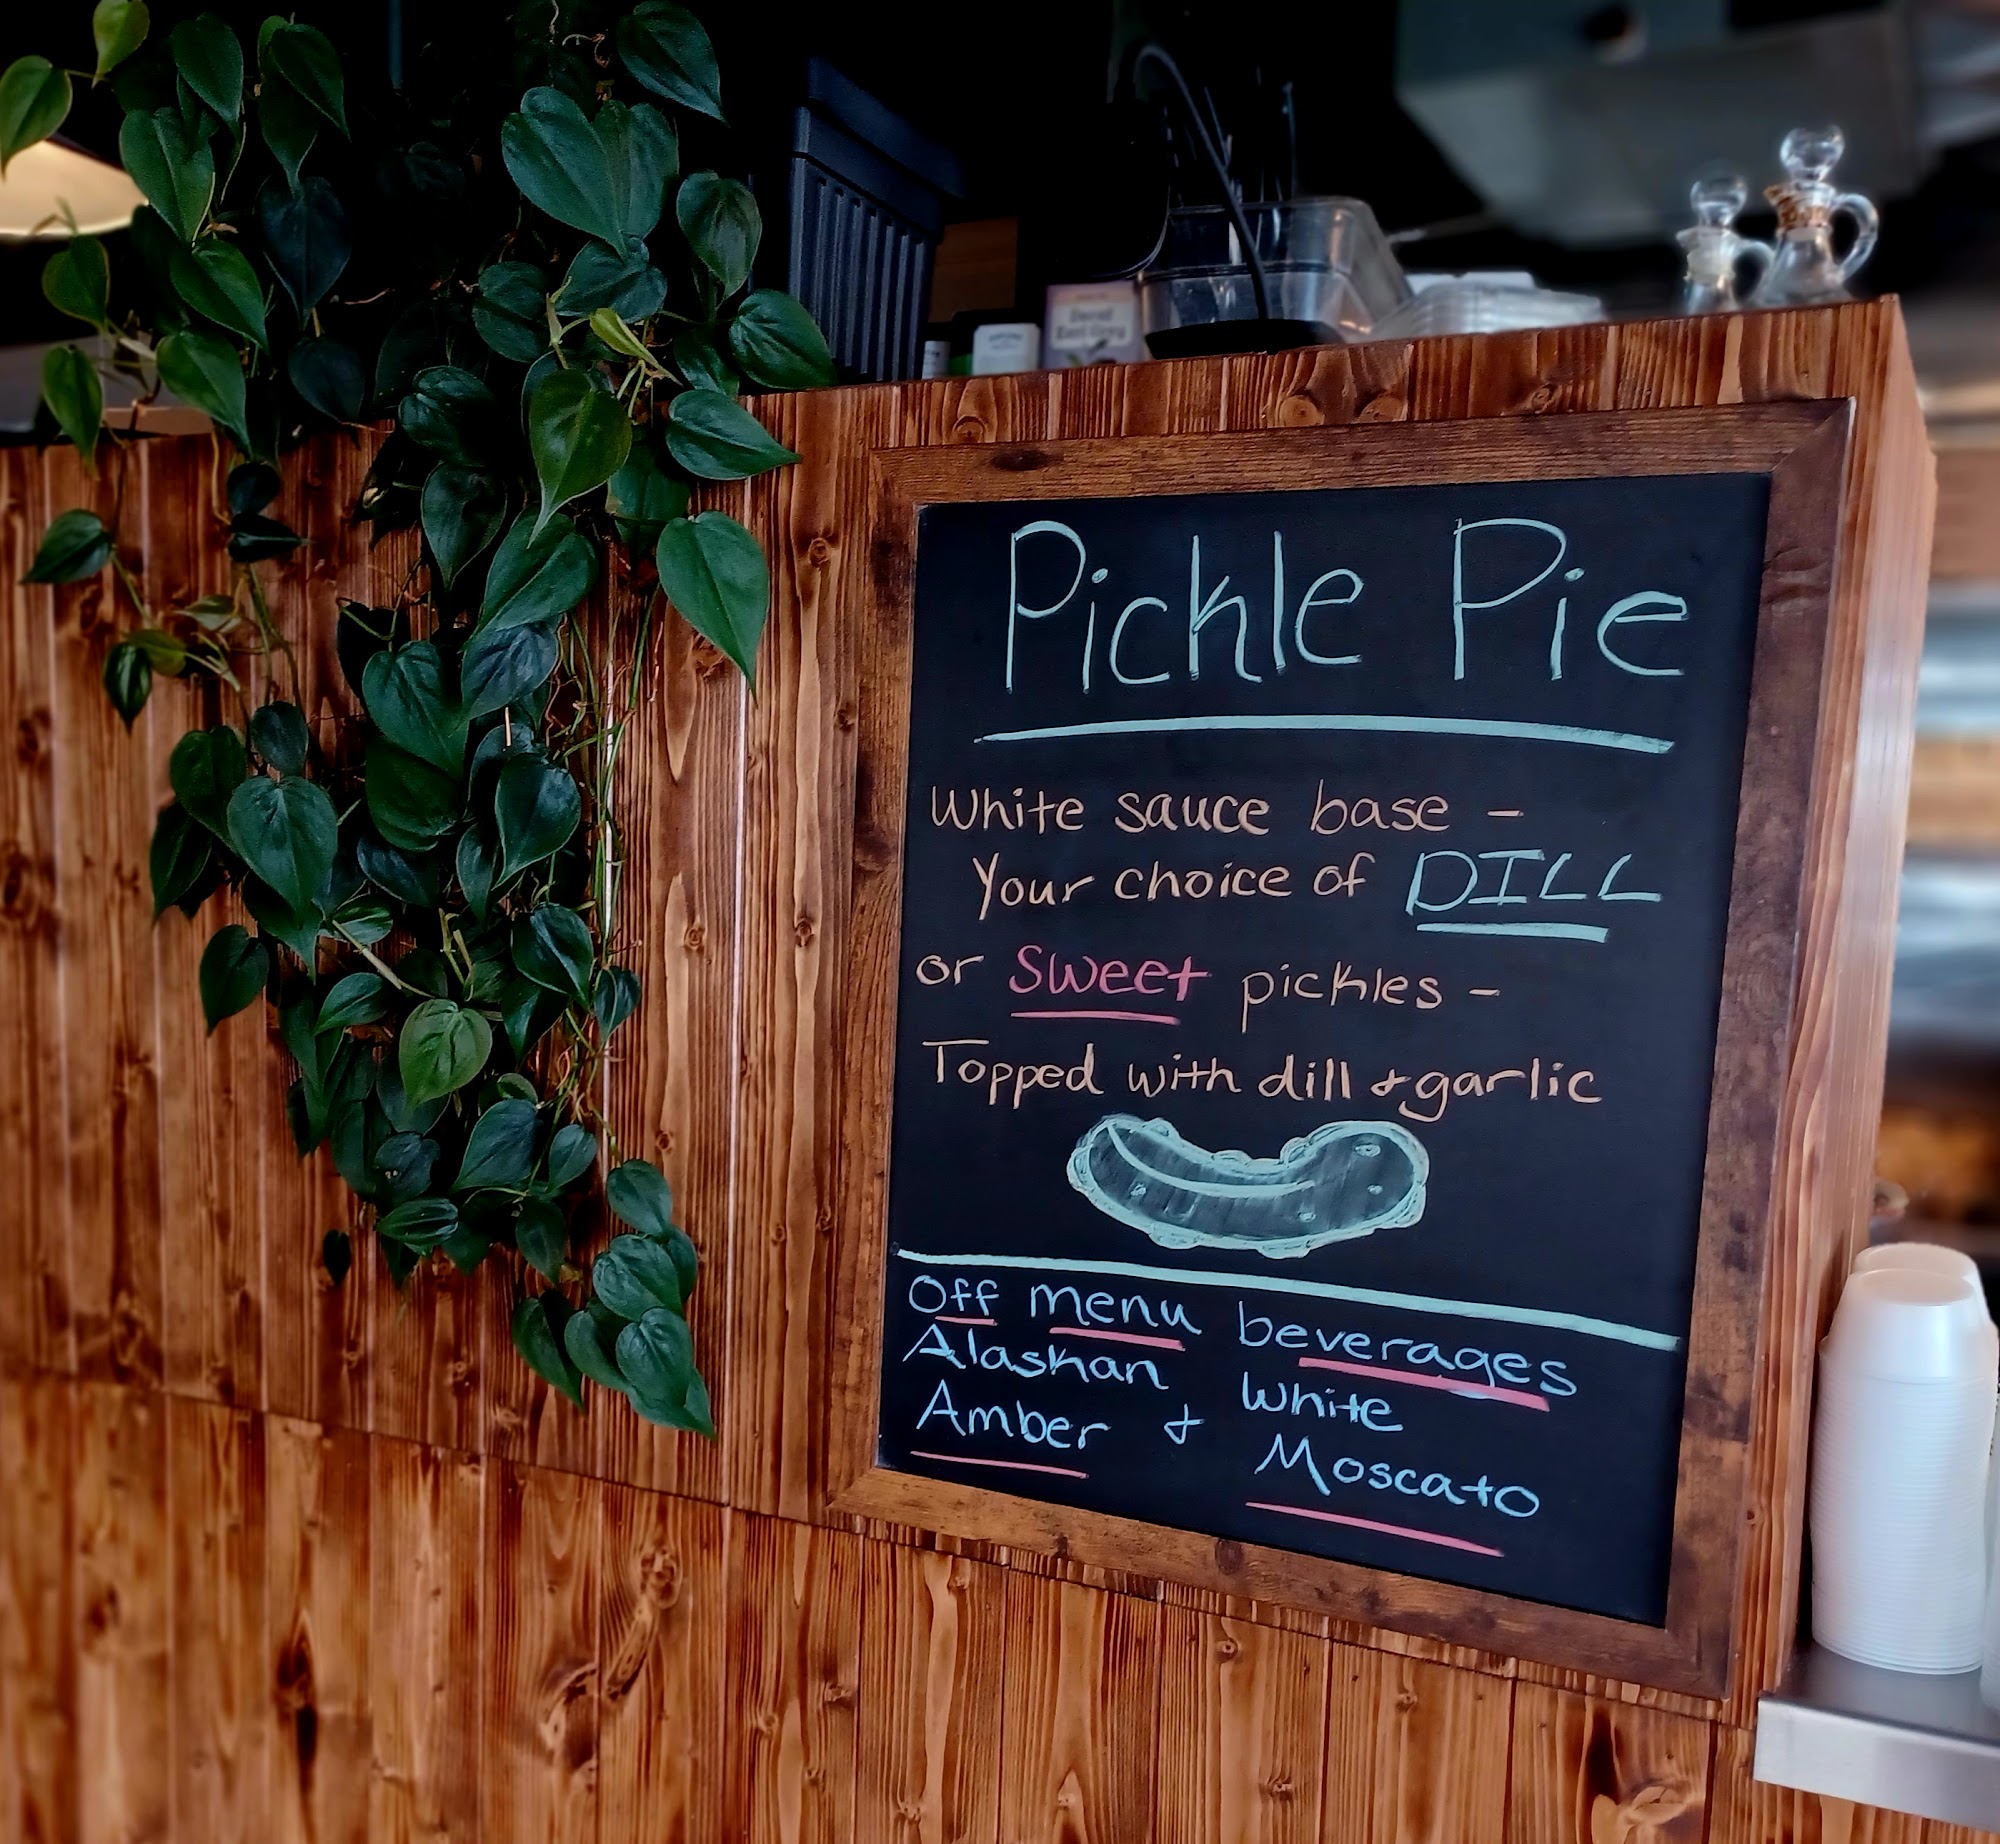 Decaf
Earl Grey
Pickle Pie
White sauce base -
Your choice of DILL
or Sweet pickles -
Topped with dill & garlic
Off menu beverages
Alaskan White
Amber & Moscato